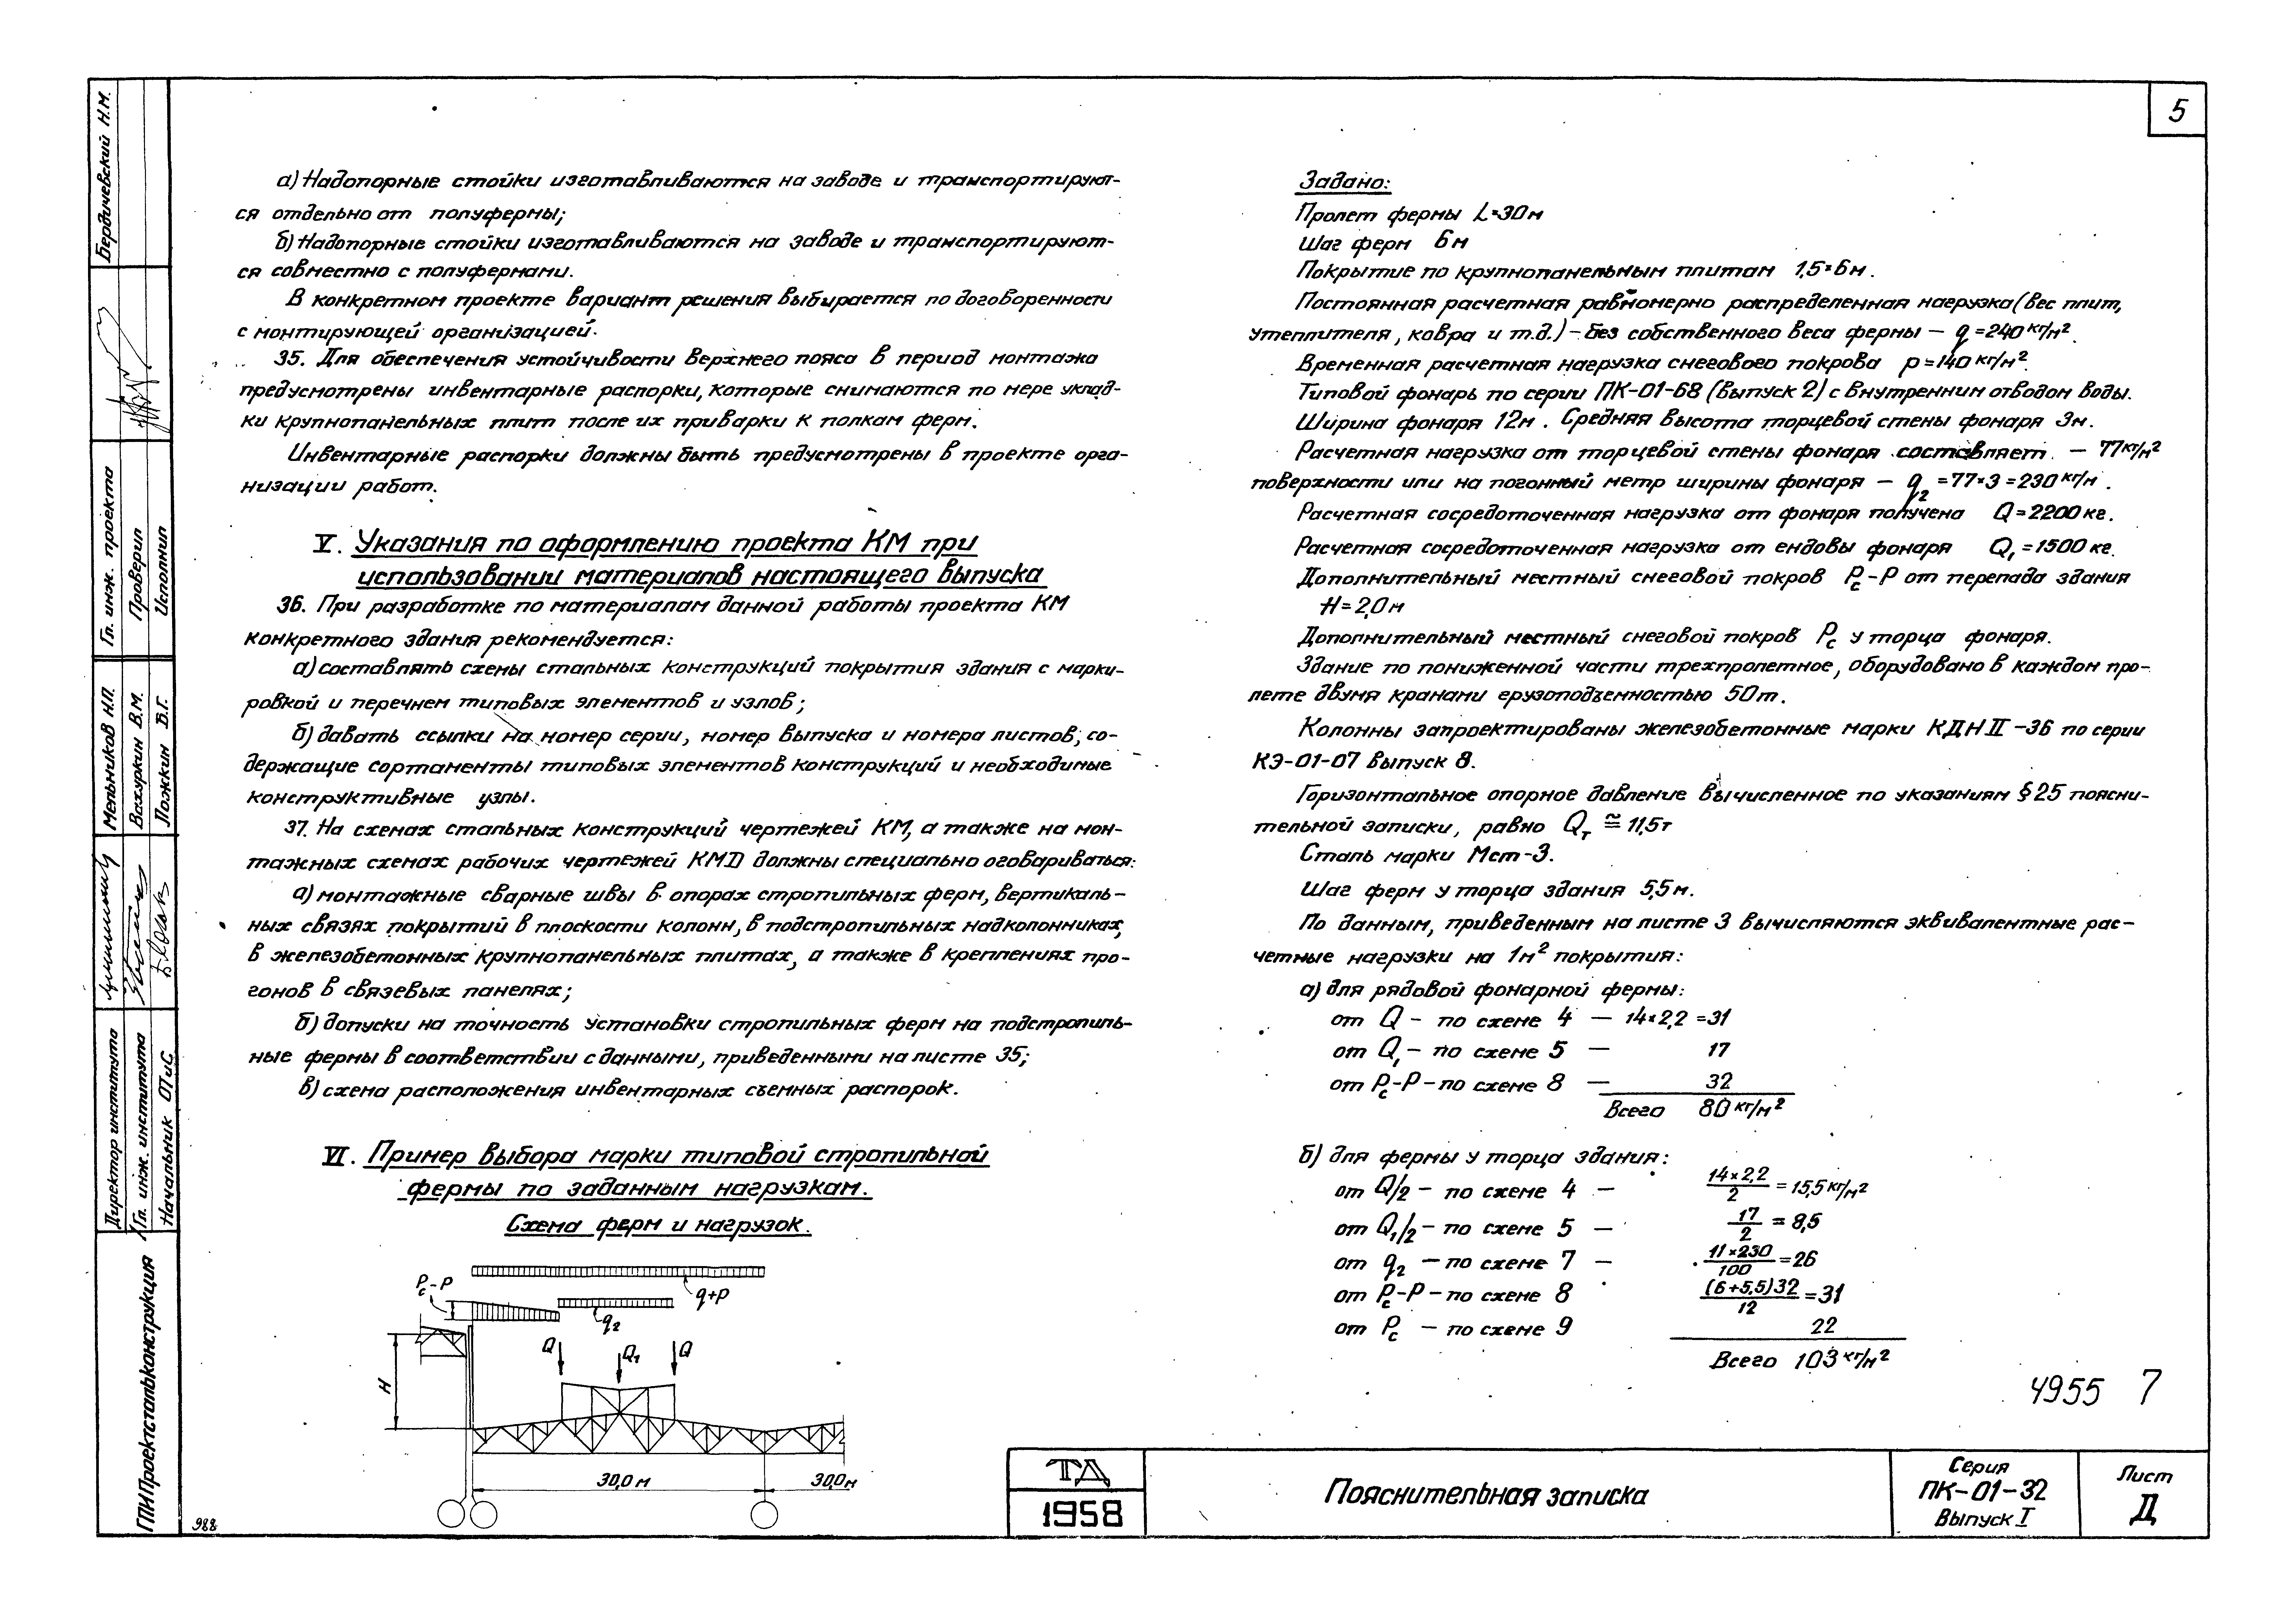 5
а) Надопорные стойки изготавливаются на заводе и транспортируют-
ся отдельно от полуфермы;
б) Надопорные стойки изготавливаются на заводе и транспортируют-
ся совместно с полуфермами.
В конкретном проекте вариант решения выбирается по договоренности
с монтирующей организацией.
35. Для обеспечения устойчивости верхнего пояса в период монтажа
предусмотрены инвентарные распорки, которые снимаются по мере уклад-
ки крупнопанельных плит после их приварки к полкам ферм.
Инвентарные распорки должны быть предусмотрены в проекте орга-
низации работ.
V. Указания по оформлению проекта КМ при
использовании материалов настоящего выпуска
36. При разработке по материалам данной работы проекта КМ
конкретного здания рекомендуется:
а) составлять схемы стальных конструкций покрытия здания с марки-
ровкой и перечнем типовых элементов и узлов;
б) давать ссылки на номер серии, номер выпуска и номера листов, со-
держащие сортаменты типовых элементов конструкций и необходимые
конструктивные узлы.
37. На схемах стальных конструкций чертежей КМ, а также на мон-
тажных схемах рабочих чертежей КМД должны специально оговариваться:
а) монтажные сварные швы в опорах стропильных ферм, вертикаль-
ных связях покрытий в плоскости колонн, в подстропильных надколонниках,
в железобетонных крупнопанельных плитах, а также в креплениях про-
гонов в связевых панелях;
б) допуски на точность установки стропильных ферм на подстропиль-
ные фермы в соответствии с данными, приведенными на листе 35;
в) схема расположения инвентарных съемных распорок.
VI. Пример выбора марки типовой стропильной
фермы по заданным нагрузкам.
Схема ферм и нагрузок.
Pс-P
q+P
q2
Q
Q1
Q
H
30,0 м
30,0 м
Задано:
Пролет фермы L=30м
Шаг ферм 6м
Покрытие по крупнопанельным плитам 1,5×6м.
Постоянная расчетная равномерно распределенная нагрузка (вес плит,
утеплителя, ковра и т.д.) – без собственного веса фермы – q=240 кг/м².
Временная расчетная нагрузка снегового покрова p=140 кг/м².
Типовой фонарь по серии ПК-01-68 (выпуск 2) с внутренним отводом воды.
Ширина фонаря 12м. Средняя высота торцевой стены фонаря 3м.
Расчетная нагрузка от торцевой стены фонаря составляет – 77 кг/м²
поверхности или на погонный метр ширины фонаря – q2=77×3=230 кг/м.
Расчетная сосредоточенная нагрузка от фонаря получена Q=2200кг.
Расчетная сосредоточенная нагрузка от ендовы фонаря Q1=1500кг.
Дополнительный местный снеговой покров Pс-P от перепада здания
H=2,0м
Дополнительный местный снеговой покров Pс у торца фонаря.
Здание по пониженной части трехпролетное, оборудовано в каждом про-
лете двумя кранами грузоподъемностью 50т.
Колонны запроектированы железобетонные марки КДНII-36 по серии
КЭ-01-07 выпуск 8.
Горизонтальное опорное давление вычисленное по указаниям §25 поясни-
тельной записки, равно Qт ≅ 11,5т
Сталь марки Мст-3.
Шаг ферм у торца здания 5,5м.
По данным, приведенным на листе 3 вычисляются эквивалентные рас-
четные нагрузки на 1м² покрытия:
а) для рядовой фонарной фермы:
от Q – по схеме 4 – 14×2,2=31
от Q1 – по схеме 5 – 17
от Pс-P – по схеме 8 – 32
Всего 80 кг/м²
б) для фермы у торца здания:
от Q/2 – по схеме 4 – 14×2,2/2 = 15,5 кг/м²
от Q1/2 – по схеме 5 – 17/2 = 8,5
от q2 – по схеме 7 – 11×230/100 = 26
от Pс-P – по схеме 8 (6+5,5)32/12 = 31
от Pс – по схеме 9 22
Всего 103 кг/м²
4955 7
ТД
1958
Пояснительная записка
Серия
ПК-01-32
Выпуск I
Лист
Д
988
Бердичевский Н.М.
Гл. инж. проекта
Проверил
Исполнил
Мельников Н.П.
Вахуркин В.М.
Ложкин В.Г.
Директор института
Гл. инж. института
Начальник ОТиС
ГПИ Проектстальконструкция